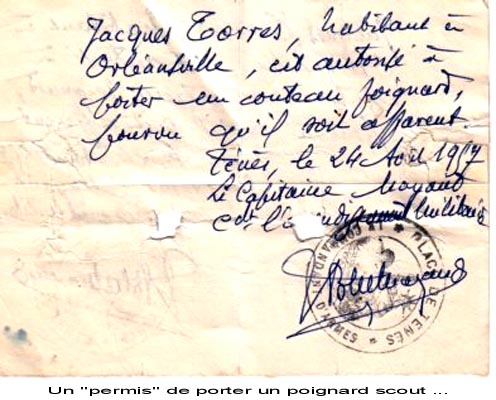 Jacques Torres, habitant à
Orléansville, est autorisé à
porter un couteau poignard,
pourvu qu'il soit apparent.
Ténès, le 24 Août 1957
Le Capitaine
Cdt militaire
PLACE DE TÉNÈS
Un "permis" de porter un poignard scout ...